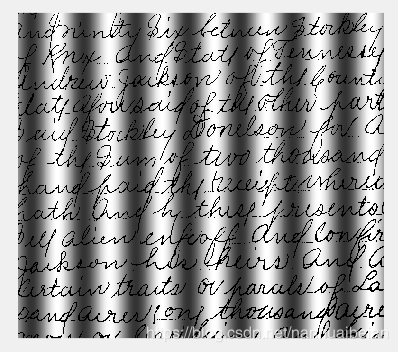 and ninety six between Stockley
of Knox and State of Tennessey
Andrew Jackson of the County
State aforesaid of the other part
said Stockley Donelson for a
of the Sum of two thousand
hand paid the receipt wherio
hath and by these presents
sell alien enfeoff and Confir
Jackson his heirs and a
Certain traits or parals of La
sand acres (ong thousand acre
https://blog.csdn.net/nanhuaibeian